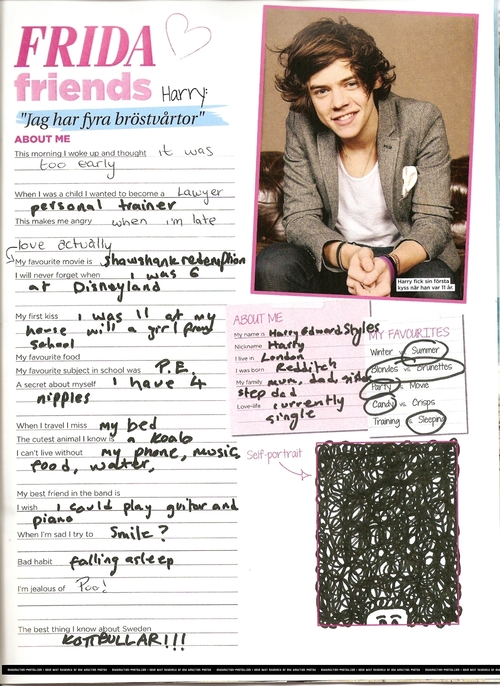 FRIDA
friends
Harry:
"Jag har fyra bröstvårtor"
ABOUT ME
This morning I woke up and thought it was
too early
When I was a child I wanted to become a Lawyer
personal trainer
This makes me angry when i'm late
love actually
My favourite movie is shawshank redemption
I will never forget when I was 6
at Disneyland
My first kiss I was 11 at my
house with a girl from
school
My favourite food
My favourite subject in school was P.E.
A secret about myself I have 4
nipples
When I travel I miss my bed
The cutest animal I know is a koala
I can't live without my phone, music,
food, water,
My best friend in the band is
I wish I could play guitar and
piano
When I'm sad I try to Smile?
Bad habit falling asleep
I'm jealous of Poo!
The best thing I know about Sweden
KOTTBULLAR!!!
Harry fick sin första
kyss när han var 11 år.
ABOUT ME
My name is Harry Edward Styles
Nickname Harry
I live in London
I was born Redditch
My family mum, dad, sister
step dad
Love-life currently
single
MY FAVOURITES
Winter vs Summer
Blondes vs. Brunettes
Party vs. Movie
Candy vs. Crisps
Training vs Sleeping
Self-portrait